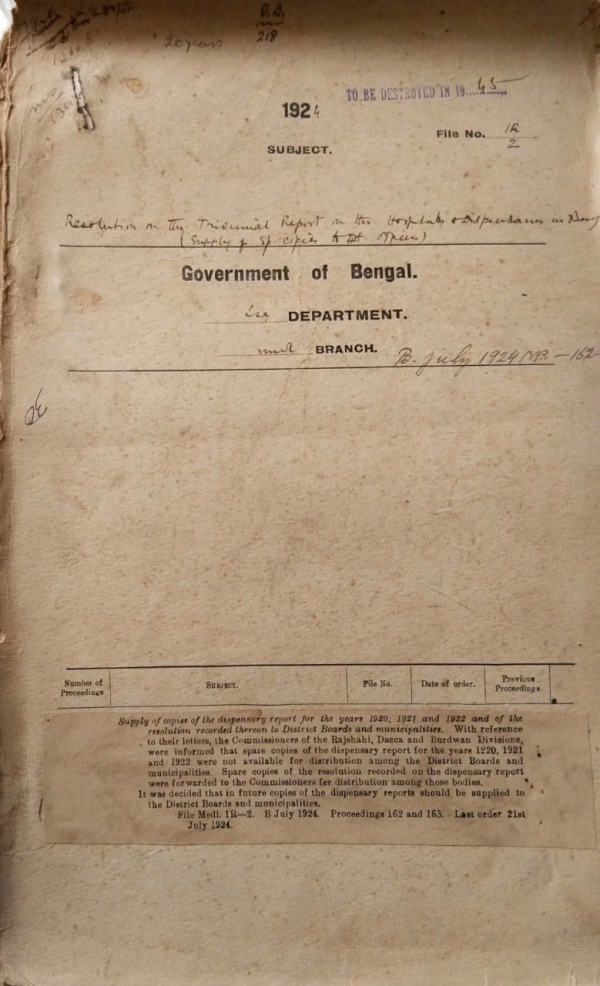 20 years
218
TO BE DESTROYED IN 1945
1924
File No. 1R/2
SUBJECT.
Resolution on the Triennial Report on the Hospitals & Dispensaries in
(Supply of Sp. copies to officers)
Government of Bengal.
DEPARTMENT.
BRANCH.
B. July 1924 162
Number of Proceedings
SUBJECT.
File No.
Date of order.
Previous Proceedings.
Supply of copies of the dispensary report for the years 1920, 1921 and 1922 and of the
resolution recorded thereon to District Boards and municipalities. With reference
to their letters, the Commissioners of the Rajshahi, Dacca and Burdwan Divisions,
were informed that spare copies of the dispensary report for the years 1920, 1921
and 1922 were not available for distribution among the District Boards and
municipalities. Spare copies of the resolution recorded on the dispensary report
were forwarded to the Commissioners for distribution among those bodies.
It was decided that in future copies of the dispensary reports should be supplied to
the District Boards and municipalities.
File Medl. 1R—2. B July 1924. Proceedings 162 and 163. Last order 21st
July 1924.